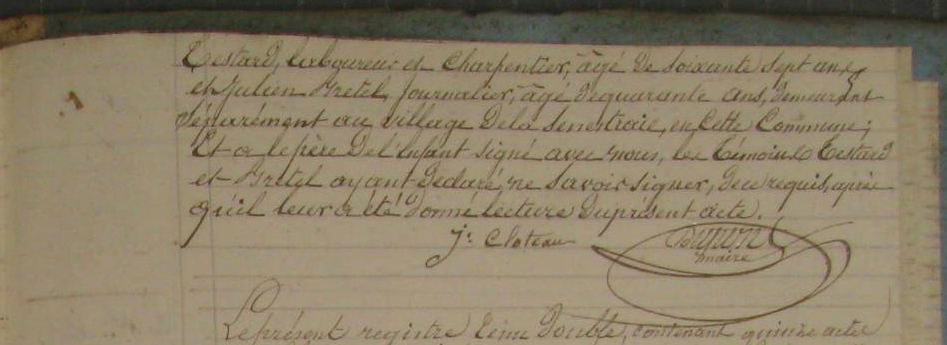 Testard, laboureur et Charpentier, âgé de soixante sept ans,
et Julien Bretel, journalier, âgé de quarante ans, demeurant
séparément au village de la Senestraie, en cette Commune;
Et a le père de l'enfant signé avec nous, les témoins Testard
et Bretel ayant déclaré ne savoir signer, de ce requis, après
qu'il leur a été donné lecture du présent acte.
Jn Cloteau
maire
Le présent registre tenu double, contenant quinze actes